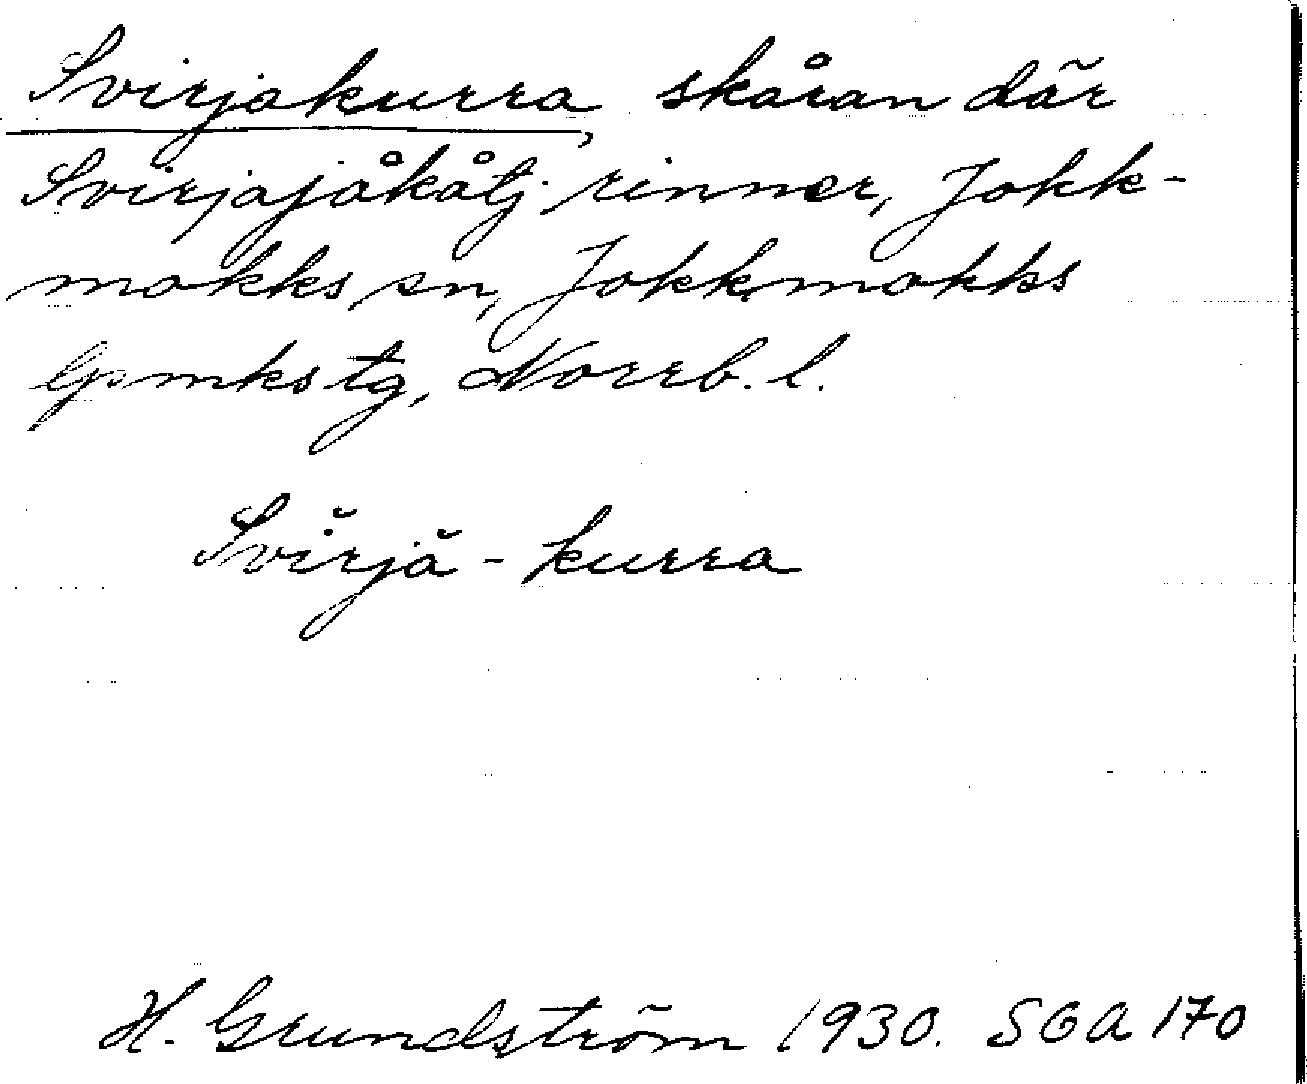 Svirjakurra, skåran där
Svirjajåkåtj rinner, Jokk-
mokks sn, Jokkmokks
lpmks tg, Norrb. l.
Svĭrjă - kurra
H. Grundström 1930. SOA 170